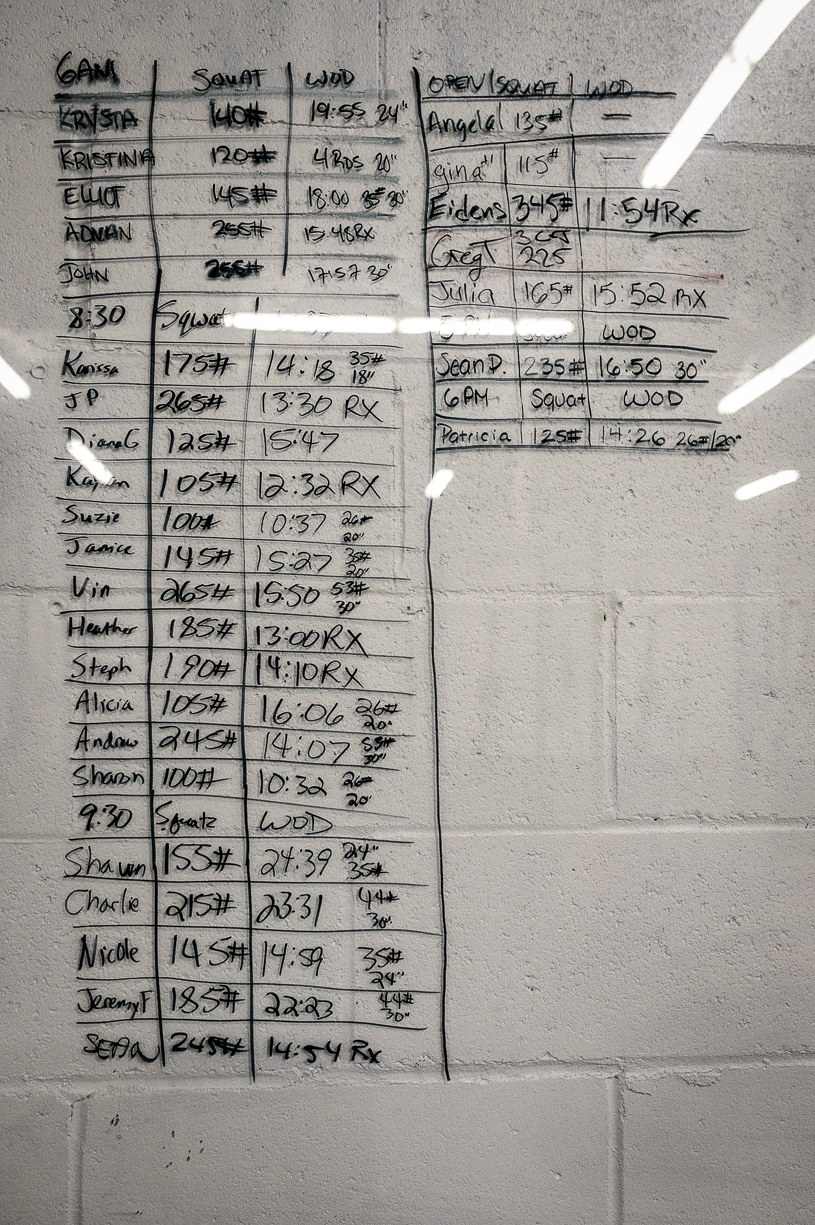 6AM SQUAT WOD
KRYSTA 140# 19:55 24"
KRISTINA 120# 4 RDS 20"
ELLIOT 145# 18:00 35# 30"
ADNAN 255# 15:48RX
JOHN 255# 17:57 30"
8:30 Squat
Karissa 175# 14:18 35# 18"
JP 265# 13:30 RX
Diana G 125# 15:47
105# 12:32 RX
Suzie 100# 10:37 26# 20"
Janice 145# 15:27 35# 20"
Vin 265# 15:50 53# 30"
Heather 185# 13:00 RX
Steph 190# 14:10 RX
Alicia 105# 16:06 26# 20"
Andrew 245# 14:07 53# 30"
Sharon 100# 10:32 26# 20"
9:30 Squatz WOD
Shawn 155# 24:39 24" 35#
Charlie 215# 23:31 44# 30"
Nicole 145# 14:59 35# 24"
Jeremy F 185# 22:23 44# 30"
245# 14:54 Rx
OPEN SQUAT WOD
Angela 135# —
gina 115# —
Eidens 345# 11:54 Rx
Greg T 225
Julia 165# 15:52 RX
5 PM WOD
Sean D. 235# 16:50 30"
6PM Squat WOD
Patricia 125# 14:26 26#/20"